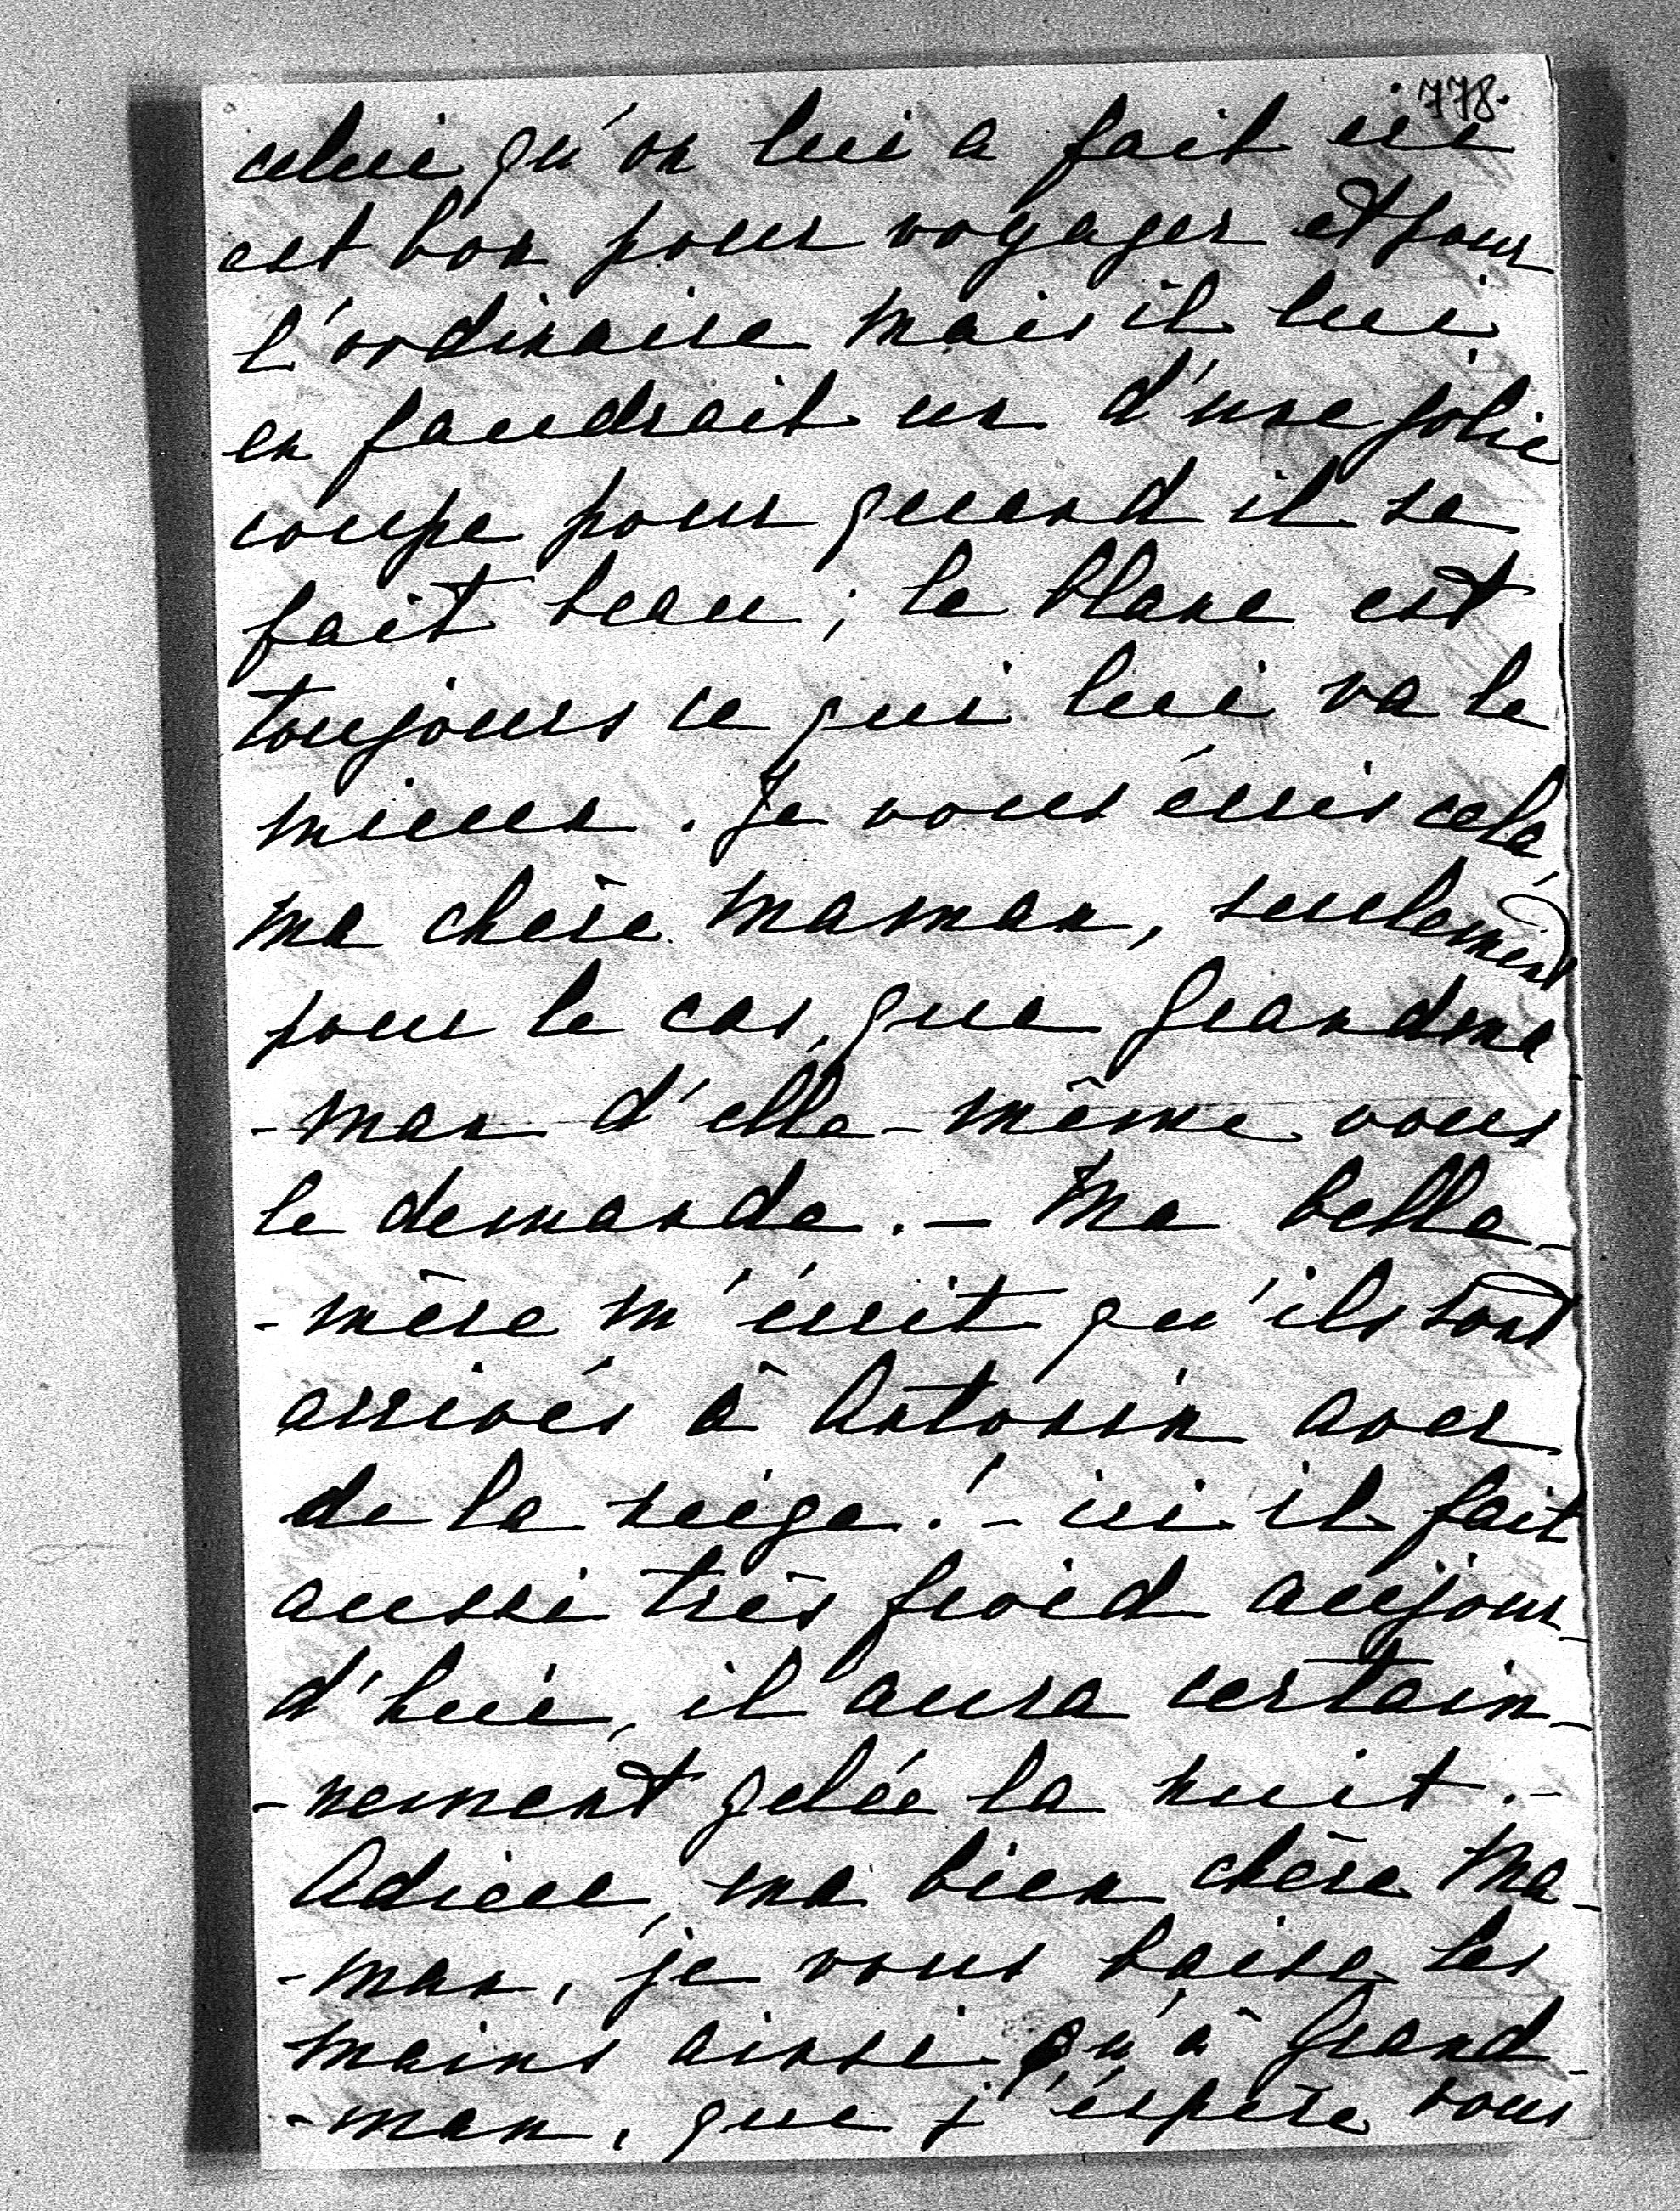 778.
celui qu'on lui a fait ici
est bon pour voyager et pour
l'ordinaire mais il lui
en faudrait un d'une jolie
coupe pour quand il se
fait beau ; le blanc est
toujours ce qui lui va le
mieux . Je vous écris cela
ma chère maman , seulement
pour le cas, que Grandma
- man d'elle - même vous
le demande . — Ma belle -
- mère m'écrit qu'ils sont
arrivés à Antonin avec
de la neige ! - ici il fait
aussi très froid aujour -
d'hui, il aura certain -
- nement gelée la nuit . -
Adieu, ma bien chère Ma -
- man , je vous baise les
mains ainsi qu'à Grand -
- man , que j'éspère vous